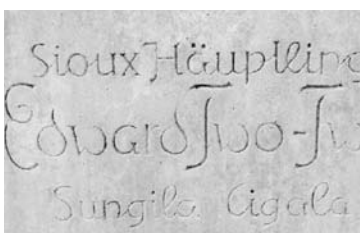 Sioux Häuptling
Edward Two-Tw
Sungila Cigala